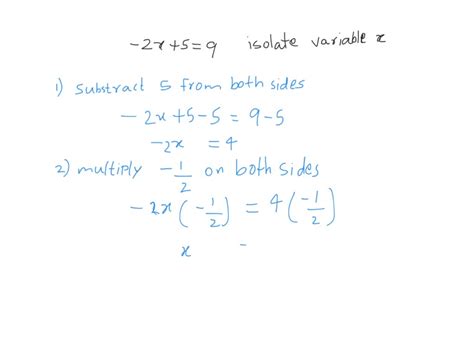 -2x+5=9 isolate variable x
1) Substract 5 from both sides
-2x+5-5 = 9-5
-2x = 4
2) multiply -1/2 on both sides
-2x(-1/2) = 4(-1/2)
x =